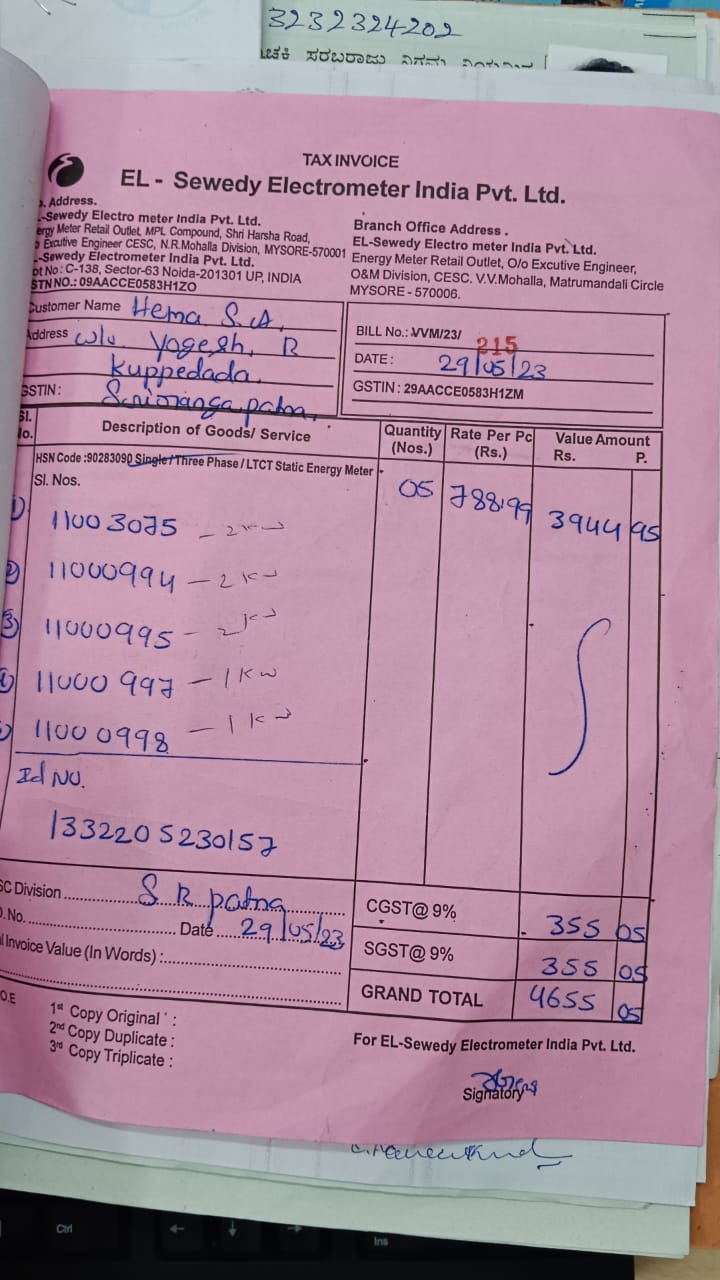 3232324202
ಸರಬರಾಜು ನಿಗಮ
TAX INVOICE
EL - Sewedy Electrometer India Pvt. Ltd.
. Address.
-Sewedy Electro meter India Pvt. Ltd.
ergy Meter Retail Outlet, MPL Compound, Shri Harsha Road,
Excutive Engineer CESC, N.R.Mohalla Division, MYSORE-570001
-Sewedy Electrometer India Pvt. Ltd.
ot No : C-138, Sector-63 Noida-201301 UP, INDIA
STN NO.: 09AACCE0583H1ZO
Branch Office Address .
EL-Sewedy Electro meter India Pvt. Ltd.
Energy Meter Retail Outlet, O/o Excutive Engineer,
O&M Division, CESC. V.V.Mohalla, Matrumandali Circle
MYSORE - 570006.
Customer Name Hema S.A.
Address w/o Yogesh, R
Kuppedada,
GSTIN : Sriranga patna.
BILL No.: VVM/23/ 215
DATE : 29/05/23
GSTIN : 29AACCE0583H1ZM
Sl. No. Description of Goods/ Service Quantity (Nos.) Rate Per Pc (Rs.) Value Amount Rs. P.
HSN Code :90283090 Single / Three Phase / LTCT Static Energy Meter
Sl. Nos. 05 788.99 3944 95
1) 11003075 - 2KW
2) 11000994 - 2KW
3) 11000995 - 2KW
4) 11000997 - 1KW
5) 11000998 - 1KW
Id No.
1332205230157
SC Division S R patna CGST@ 9% 355 05
. No. Date 29/05/23 SGST@ 9% 355 05
l Invoice Value (In Words) : GRAND TOTAL 4655 05
O.E 1st Copy Original :
2nd Copy Duplicate :
3rd Copy Triplicate :
For EL-Sewedy Electrometer India Pvt. Ltd.
Signatory
Ctrl
Ins